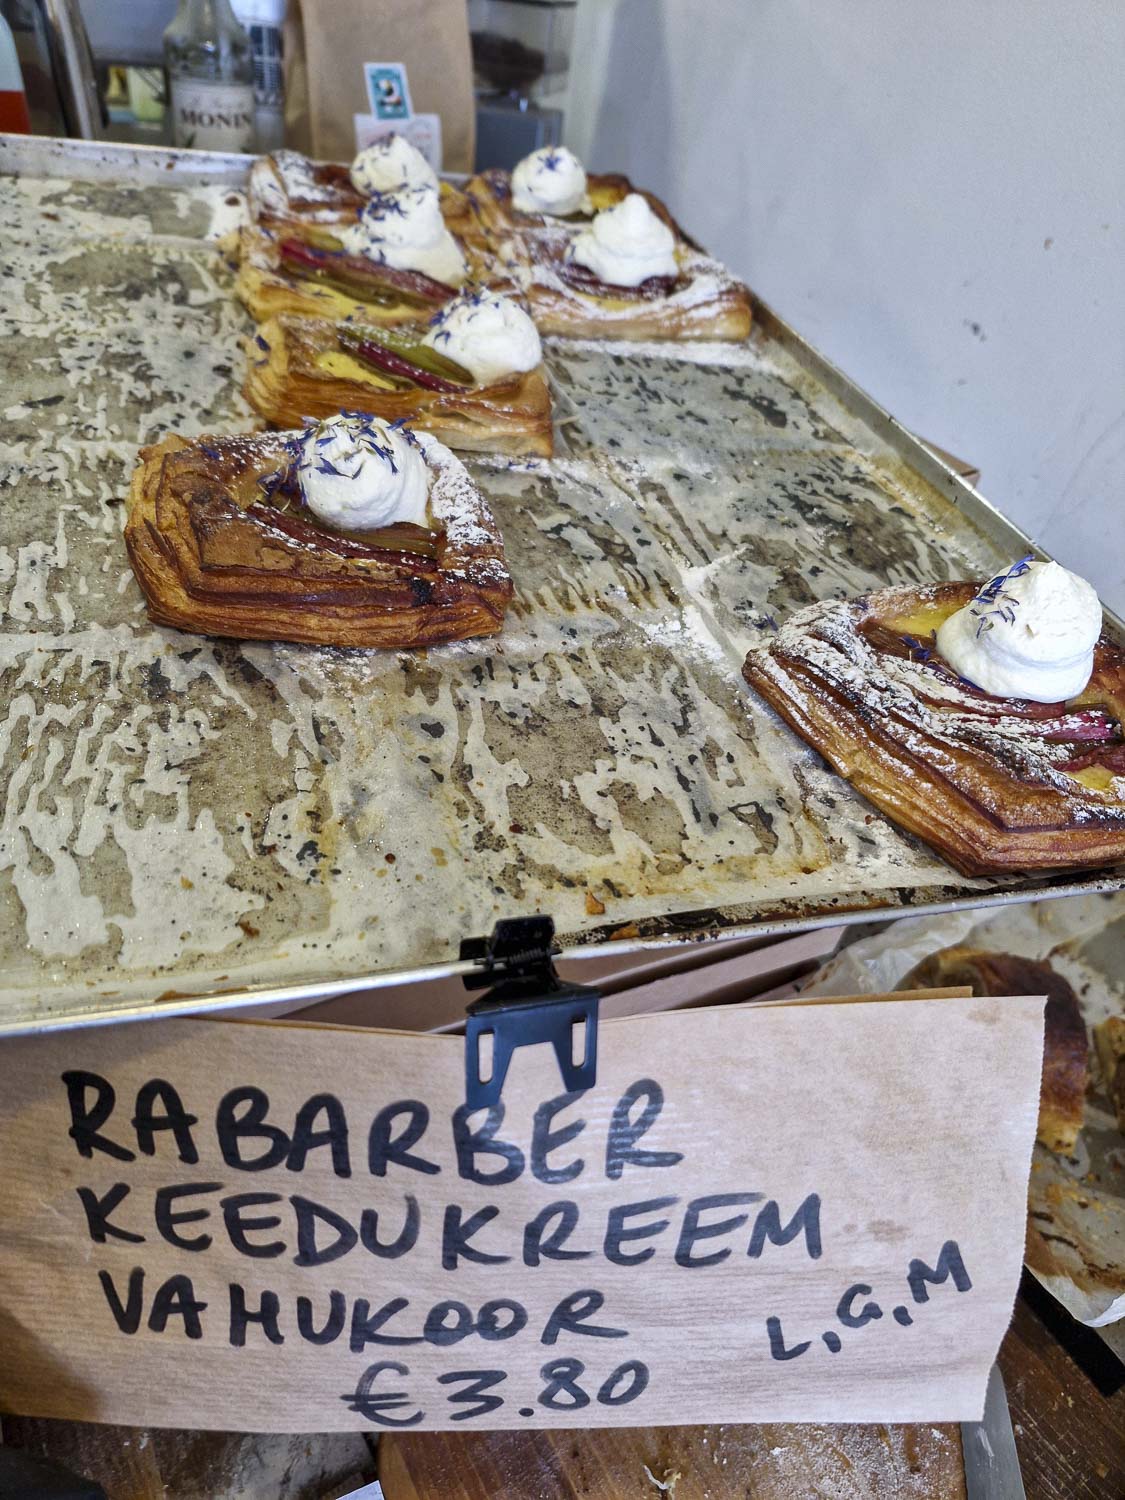 MONIN
RABARBER
KEEDUKREEM
VAHUKOOR
L, G, M
€3.80